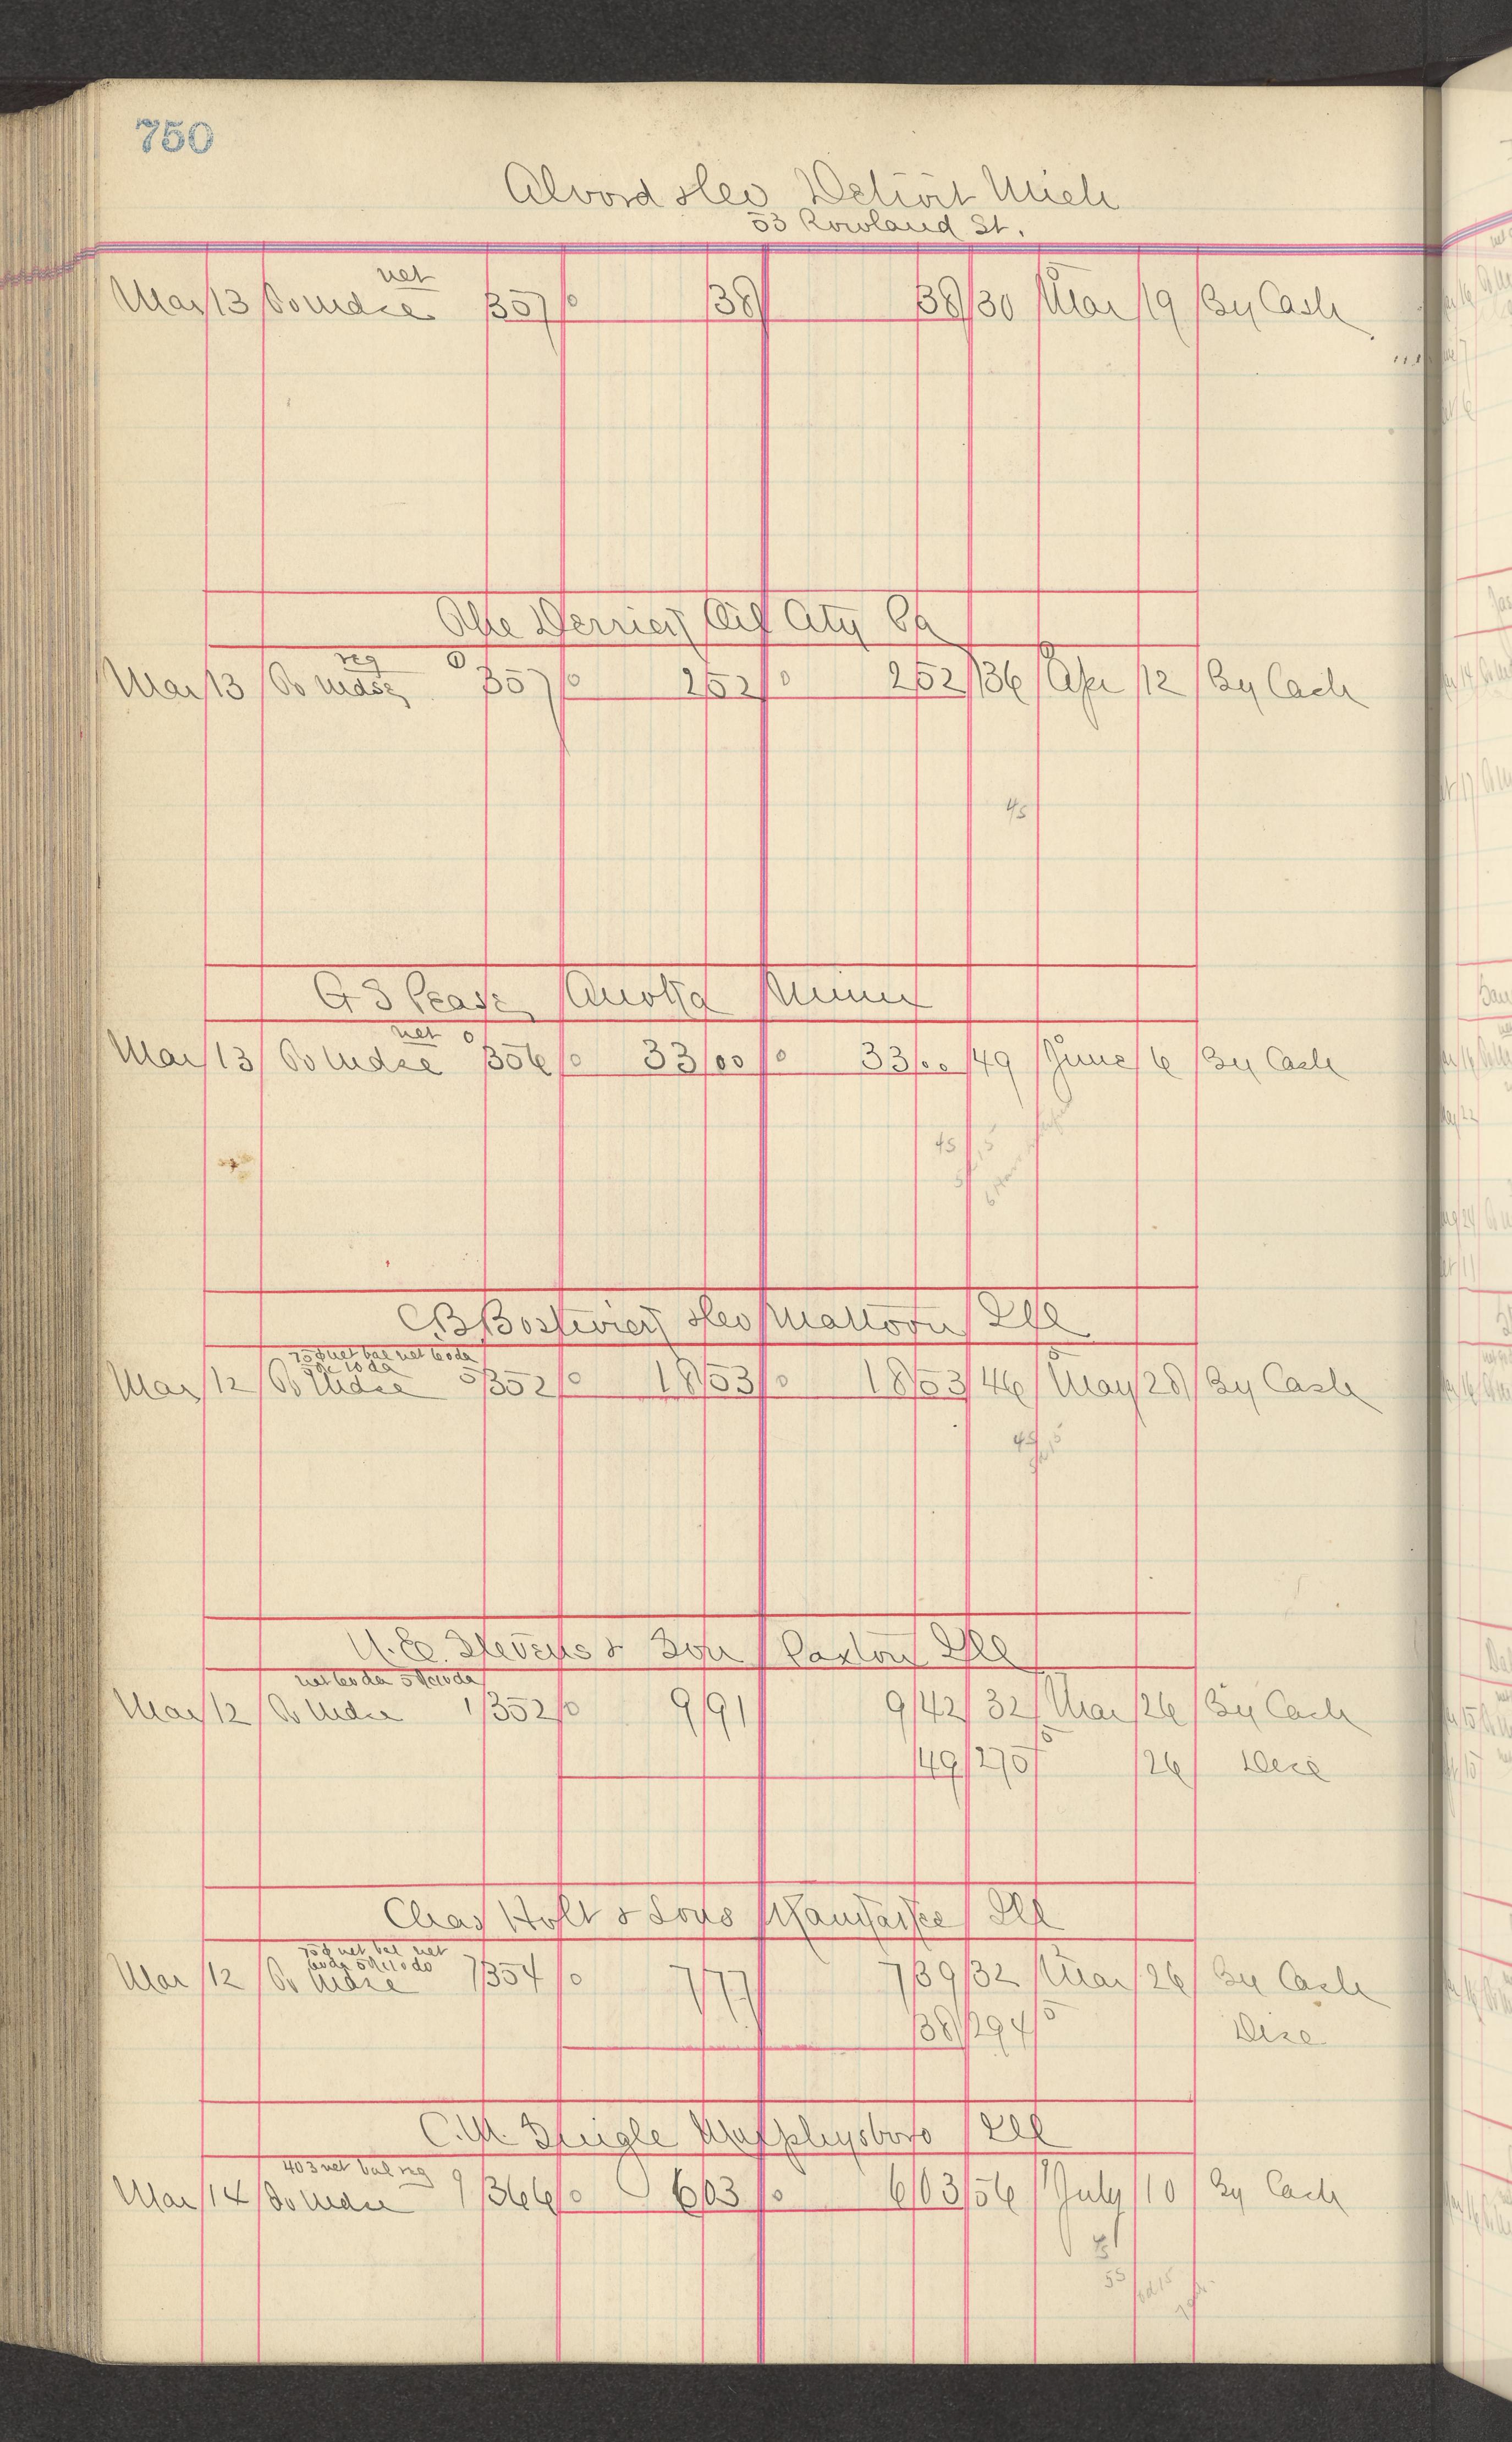 750
Alvord & Co Detroit Mich
53 Rowland St.
net
Mar 13 To Mdse 357 0 38 38 30 Mar 19 By Cash
Oil City Pa
reg
Mar 13 To Mdse 357 0 252 0 252 136 Apr 12 By Cash
45
G S Pease Anoka Minn
net 0
Mar 13 To Mdse 356 0 33 00 0 33 00 49 June 6 By Cash
45
C B Bostwick & Co Mattoon Ill
net bal net 60 da
Mar 12 To Mdse 352 0 18 53 0 18 53 46 May 28 By Cash
45
Stevens & Son Paxton Ill
net 60 da 5% 10 da
Mar 12 To Mdse 1 352 0 9 91 9 42 32 Mar 26 By Cash
49 270 26 Disc
Chas Holt & Sons Kankakee Ill
net bal net
60 da 5% 10 do
Mar 12 To Mdse 7 354 0 7 77 7 39 32 Mar 26 By Cash
38 294 Disc
C.M. Murphysboro Ill
403 net bal reg
Mar 14 To Mdse 366 0 6 03 0 6 03 56 July 10 By Cash
55